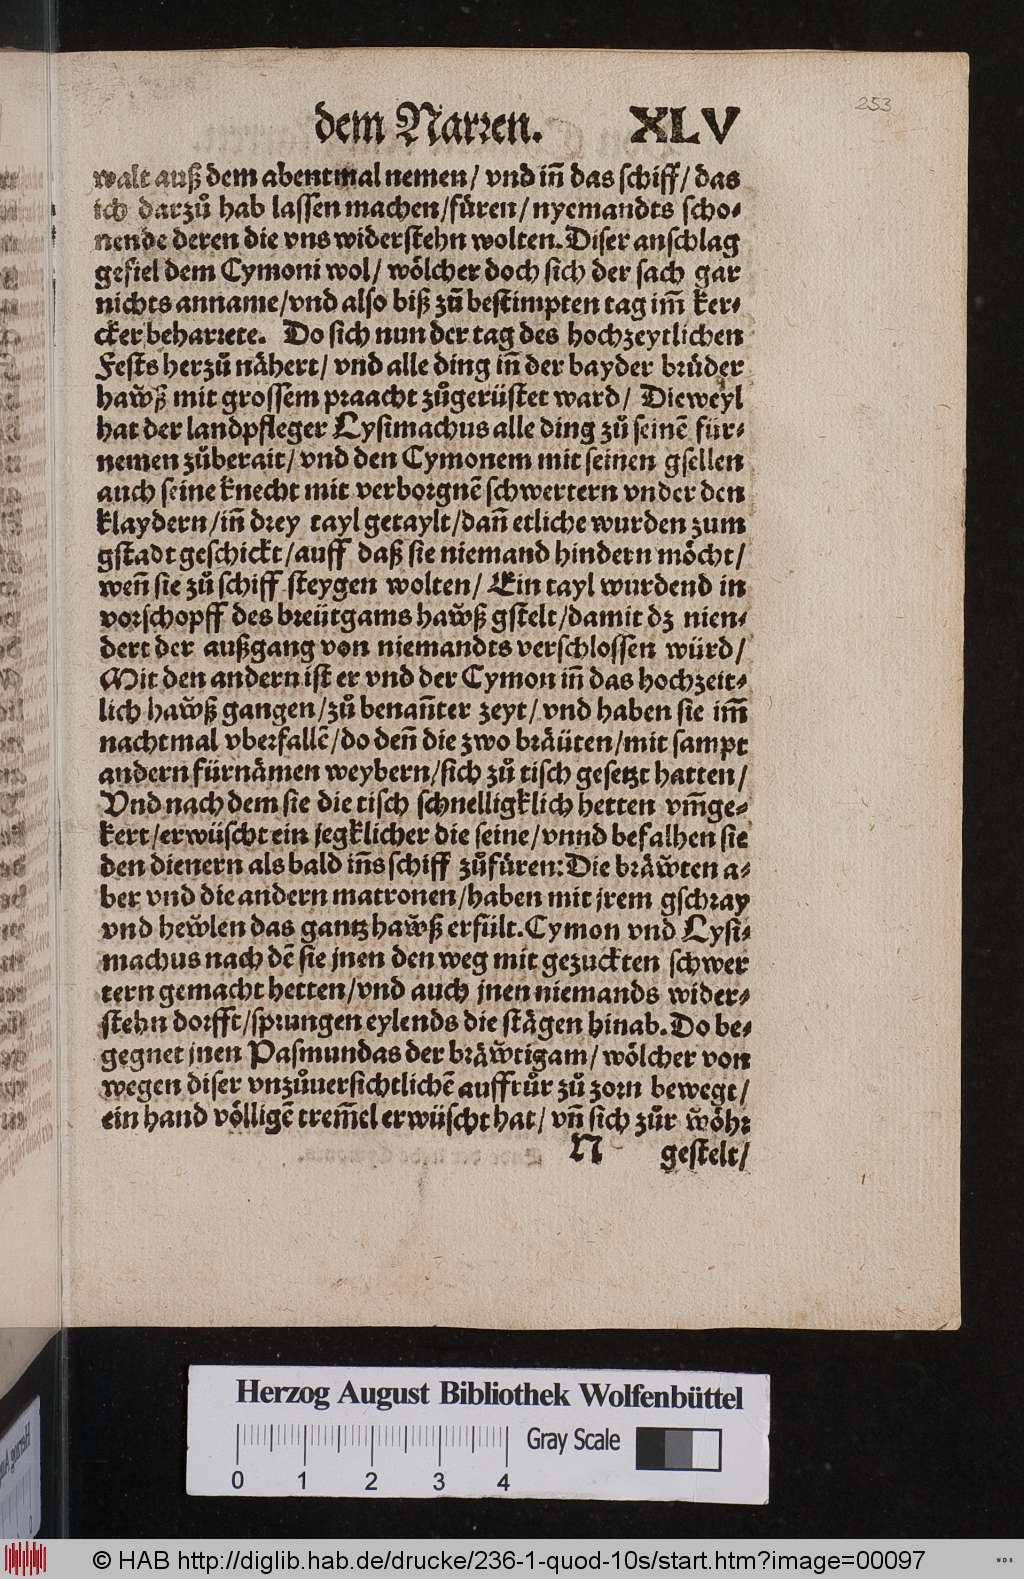 dem Narꝛen. XLV
253
walt auß dem abentmal nemen/ vnd iñ das ſchiff/ das
ich darzů hab laſſen machen/füren/ nyemandts ſcho-
nende deren die vns widerſtehn wolten. Diſer anſchlag
gefiel dem Cymoni wol/ wölcher doch ſich der ſach gar
nichts anname/vnd alſo biß zů beſtimpten tag im̃ ker-
cker beharꝛete. Do ſich nun der tag des hochzeytlichen
Feſts herzů nähert/ vnd alle ding iñ der bayder brüder
haw̌ß mit groſſem pꝛaacht zůgerüſtet ward/ Dieweyl
hat der landpfleger Lyſimachus alle ding zů ſeinẽ für-
nemen zůberait/ vnd den Cymonem mit ſeinen gſellen
auch ſeine knecht mit verboꝛgnẽ ſchwertern vnder den
klaydern/iñ dꝛey tayl getaylt/dañ etliche wurden zum
gſtadt geſchickt/auff daß ſie niemand hindern möcht/
weñ ſie zů ſchiff ſteygen wolten/ Ein tayl wurdend in
voꝛſchopff des bꝛeütgams haw̌ß gſtelt/damit dz nien-
dert der außgang von niemandts verſchloſſen würd/
Mit den andern iſt er vnd der Cymon iñ das hochzeit-
lich haw̌ß gangen/zů benañter zeyt/ vnd haben ſie im̃
nachtmal vberfallẽ/do deñ die zwo bꝛäüten/mit ſampt
andern fürnämen weybern/ſich zů tiſch geſetzt hatten/
Vnd nach dem ſie die tiſch ſchnelligklich hetten vm̃ge-
kert/erwüſcht ein jegklicher die ſeine/vnnd befalhen ſie
den dienern als bald iñs ſchiff zůfüren: Die bꝛäw̌ten a-
ber vnd die andern matronen/haben mit jrem gſchꝛay
vnd hew̌len das gantz haw̌ß erfült. Cymon vnd Lyſi-
machus nach dẽ ſie jnen den weg mit gezuckten ſchwer
tern gemacht hetten/vnd auch jnen niemands wider-
ſtehn doꝛfft/ſpꝛungen eylends die ſtägen hinab. Do be-
gegnet jnen Paſmundas der bꝛäw̌tigam/ wölcher von
wegen diſer vnzůuerſichtlichẽ auffrůr zů zoꝛn bewegt/
ein hand völligẽ trem̃el erwüſcht hat/ vñ ſich zůr w̌öhꝛ
N geſtelt/
Herzog August Bibliothek Wolfenbüttel
0 1 2 3 4
Gray Scale
© HAB http://diglib.hab.de/drucke/236-1-quod-10s/start.htm?image=00097